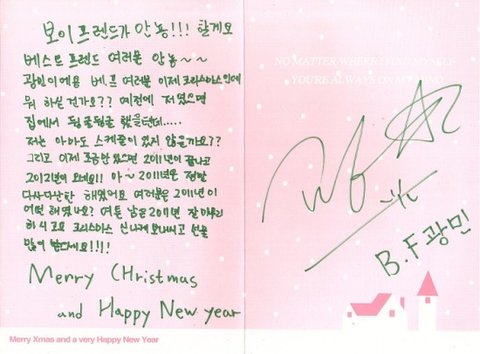 보이프렌드가 안농!!! 할게요
베스트 프렌드 여러분 안농~~
광민이에용 베.프 여러분 이제 크리스마스인데
뭐 하실 건가요?? 예전에 저였으면
집에서 뒹굴뒹굴 했을텐데.....
저는 아마도 스케줄이 있지 않을까요??
그리고 이제 조금만 있으면 2011년이 끝나고
2012년이 오네요!! 아~ 2011년은 정말
다사다난한 해였어요 여러분은 2011년이
어떤 해였나요? 여튼 남은 2011년 잘 마무리
하시고요 크리스마스 신나게 보내시고 선물
많이 받으세요!!!!
Merry CHristmas
and Happy New year
Merry Xmas and a very Happy New Year
NO MATTER WHERE I FIND MYSELF
YOU'RE ALWAYS ON MY MIND
B.F 광민